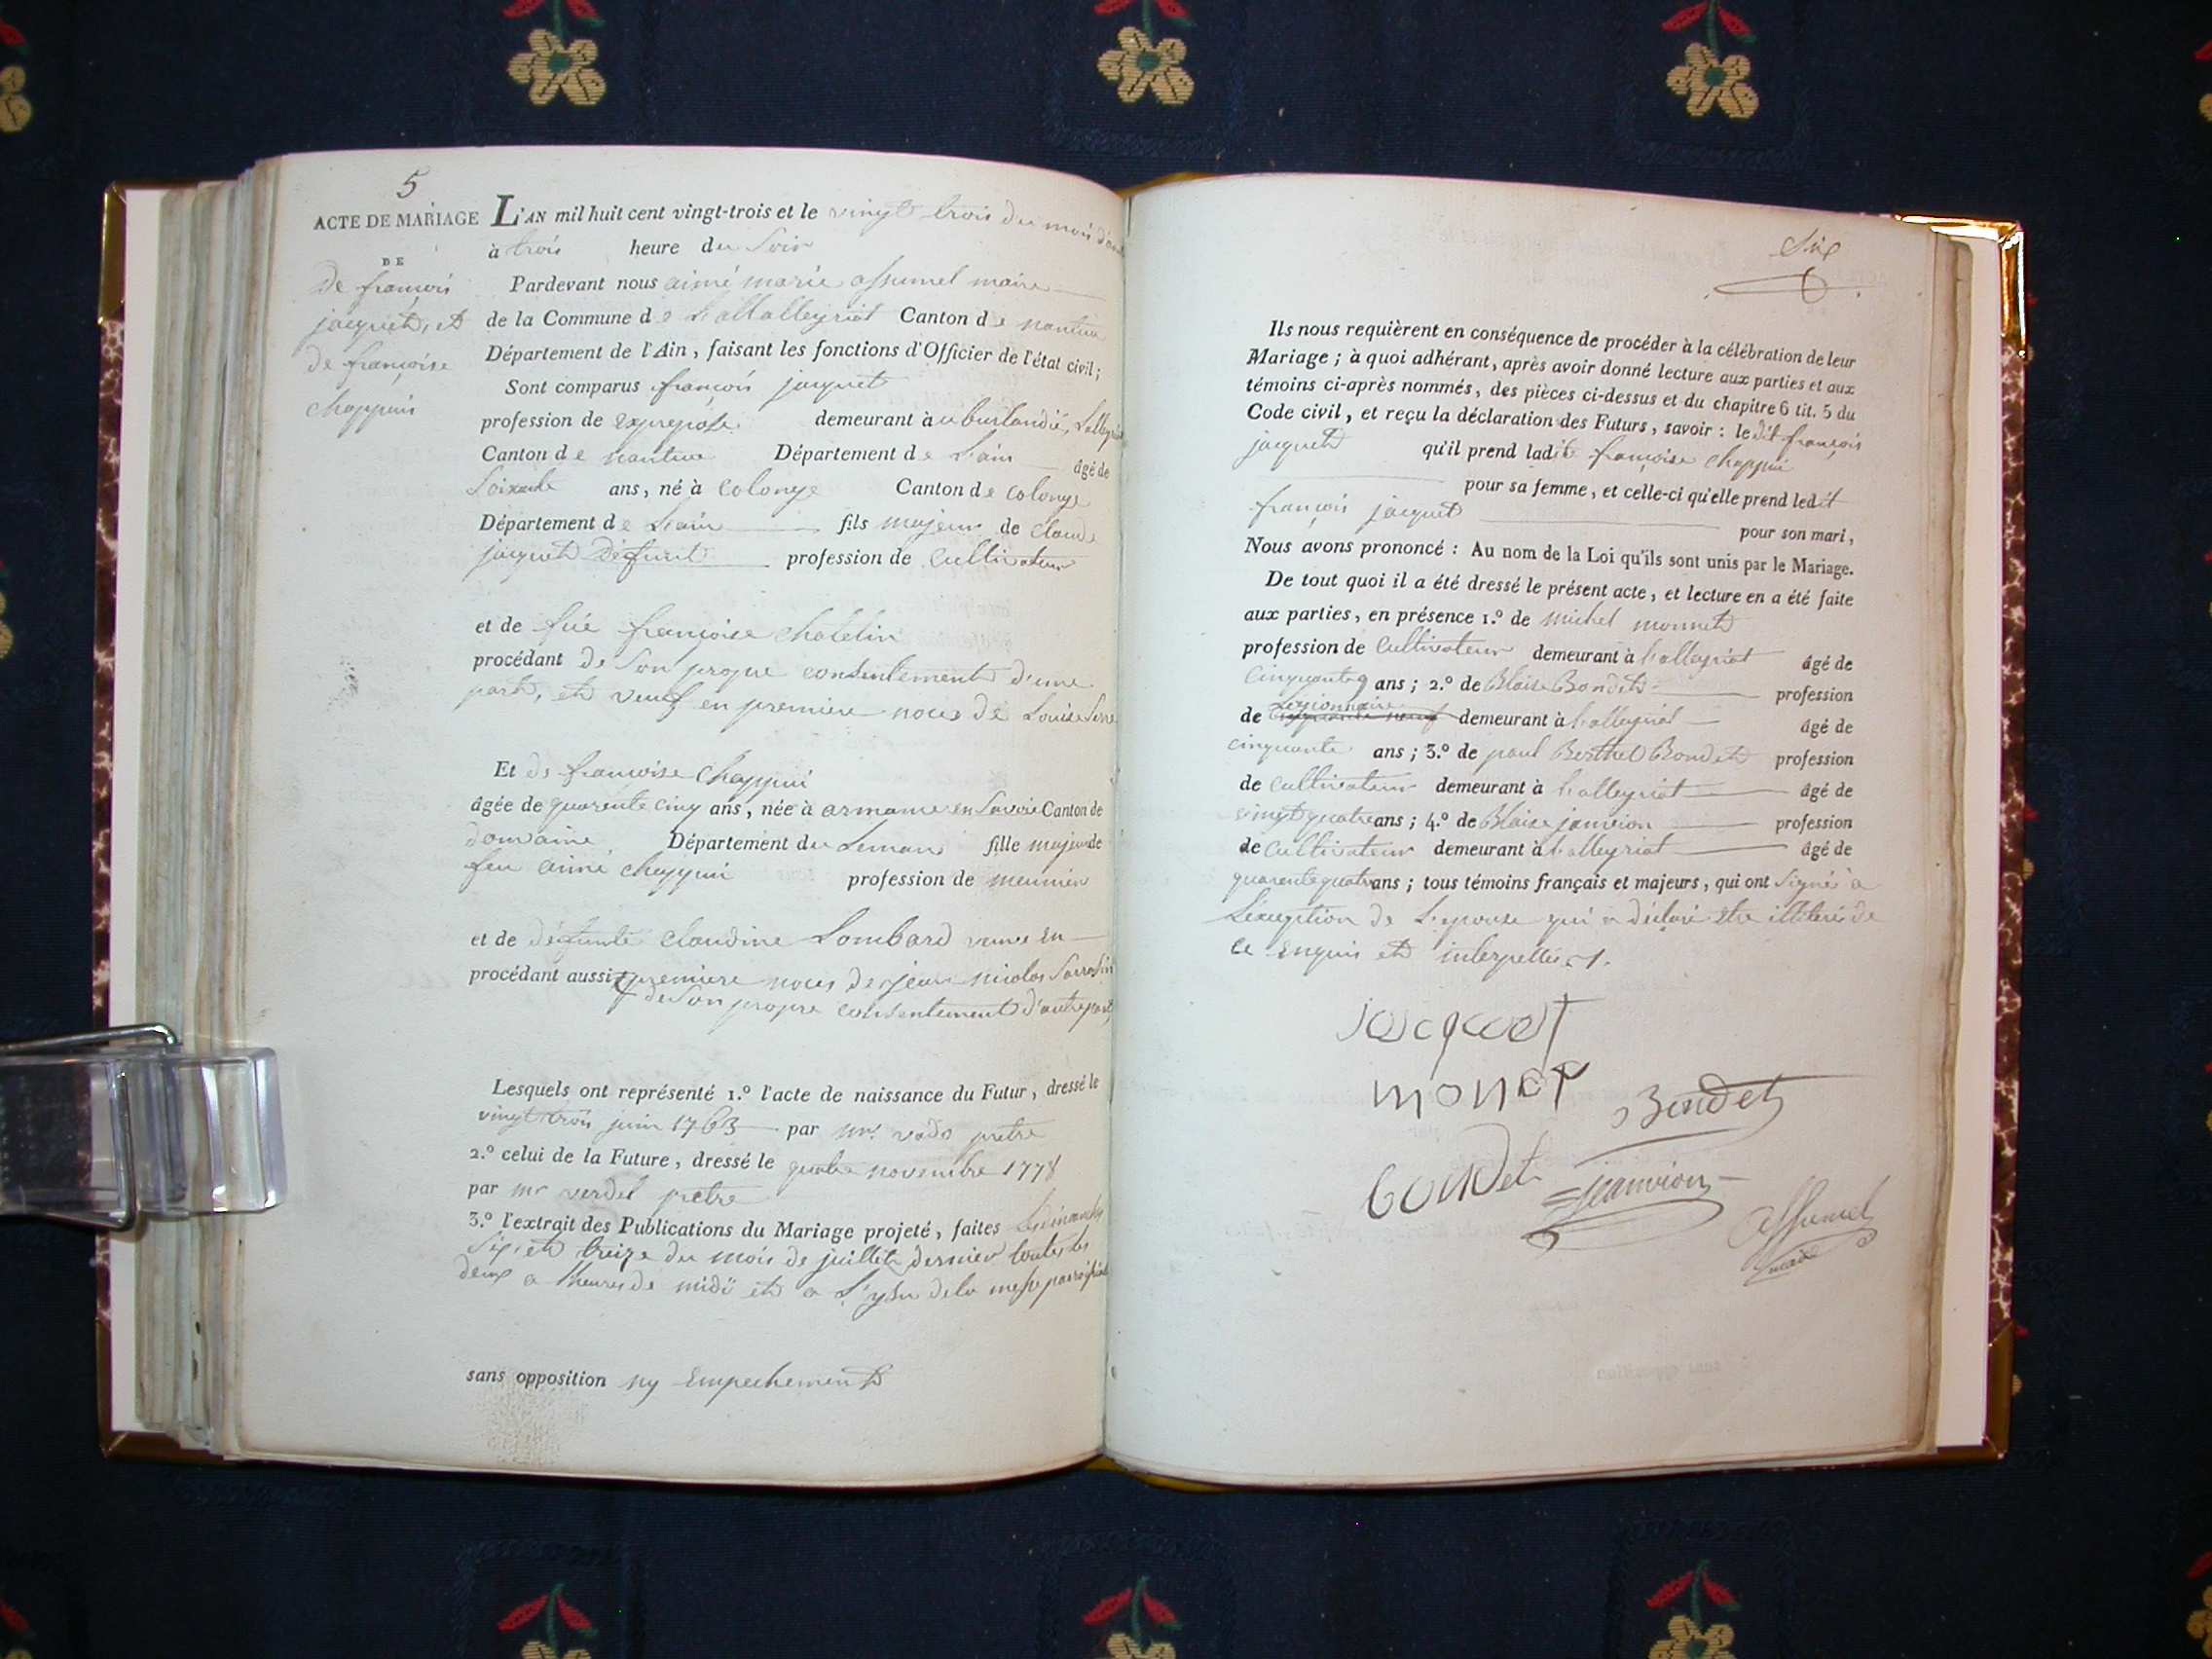 5
ACTE DE MARIAGE
DE
de françois
jacquet, et
de françoise
chappuis
L'AN mil huit cent vingt-trois et le vingt trois du mois
à trois heure du Soir
Pardevant nous aimé marie assumel maire
de la Commune de Canton de nantua
Département de l'Ain, faisant les fonctions d'Officier de l'état civil;
Sont comparus françois jacquet
profession de demeurant au
Canton de nantua Département de L'ain âgé de
Soixante ans, né à Colonge Canton de Colonge
Département de L'ain fils majeur de Claude
jacquet défunt profession de Cultivateur
et de françoise
procédant de Son propre consentement d'une
part, et veuf en premiere noces de Louise
Et de françoise Chappui
âgée de quarente cinq ans, née à en Savoie Canton de
Département du Leman fille majeur de
feu aimé chappui profession de meunier
et de défunte claudine Lombard veuve en
procédant aussi premiere noces de jean nicolas
de Son propre consentement d'autre part
Lesquels ont représenté 1.º l'acte de naissance du Futur, dressé le
vingt trois juin 1763 par mr. pretre
2.º celui de la Future, dressé le quatre novembre 1778
par mr verdel pretre
3.º l'extrait des Publications du Mariage projeté, faites
Six et treize du mois de juillet dernier toutes les
deux a l'heures de midi et a de la messe
sans opposition ny Empechement
Six
Ils nous requièrent en conséquence de procéder à la célébration de leur
Mariage; à quoi adhérant, après avoir donné lecture aux parties et aux
témoins ci-après nommés, des pièces ci-dessus et du chapitre 6 tit. 5 du
Code civil, et reçu la déclaration des Futurs, savoir: le dit françois
jacquet qu'il prend ladite françoise Chappui
pour sa femme, et celle-ci qu'elle prend ledit
françois jacquet pour son mari,
Nous avons prononcé: Au nom de la Loi qu'ils sont unis par le Mariage.
De tout quoi il a été dressé le présent acte, et lecture en a été faite
aux parties, en présence 1.º de michel monnet
profession de Cultivateur demeurant à Lalleyriat âgé de
Cinquante 9 ans; 2.º de Blaise Bondet profession
de Legionnaire demeurant à Lalleyriat âgé de
cinquante ans; 3.º de paul Berthet Bondet profession
de Cultivateur demeurant à Lalleyriat âgé de
vingt quatre ans; 4.º de Blaise janvion profession
de Cultivateur demeurant à Lalleyriat âgé de
quarente quatre ans; tous témoins français et majeurs, qui ont Signé a
L'exception de L'epouse qui a déclaré etre illiteré de
ce Enquis et interpellé
jacquet
monet
Bondet
bondet
janvion
assumel
maire